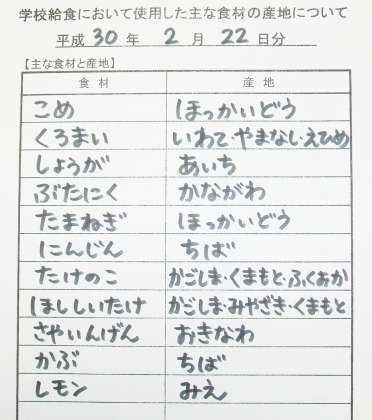 学校給食において使用した主な食材の産地について
平成 30 年 2 月 22 日分
【主な食材と産地】
食材 産地
こめ ほっかいどう
くろまい いわて・やまなし・えひめ
しょうが あいち
ぶたにく かながわ
たまねぎ ほっかいどう
にんじん ちば
たけのこ かごしま・くまもと・ふくおか
ほししいたけ かごしま・みやざき・くまもと
さやいんげん おきなわ
かぶ ちば
レモン みえ